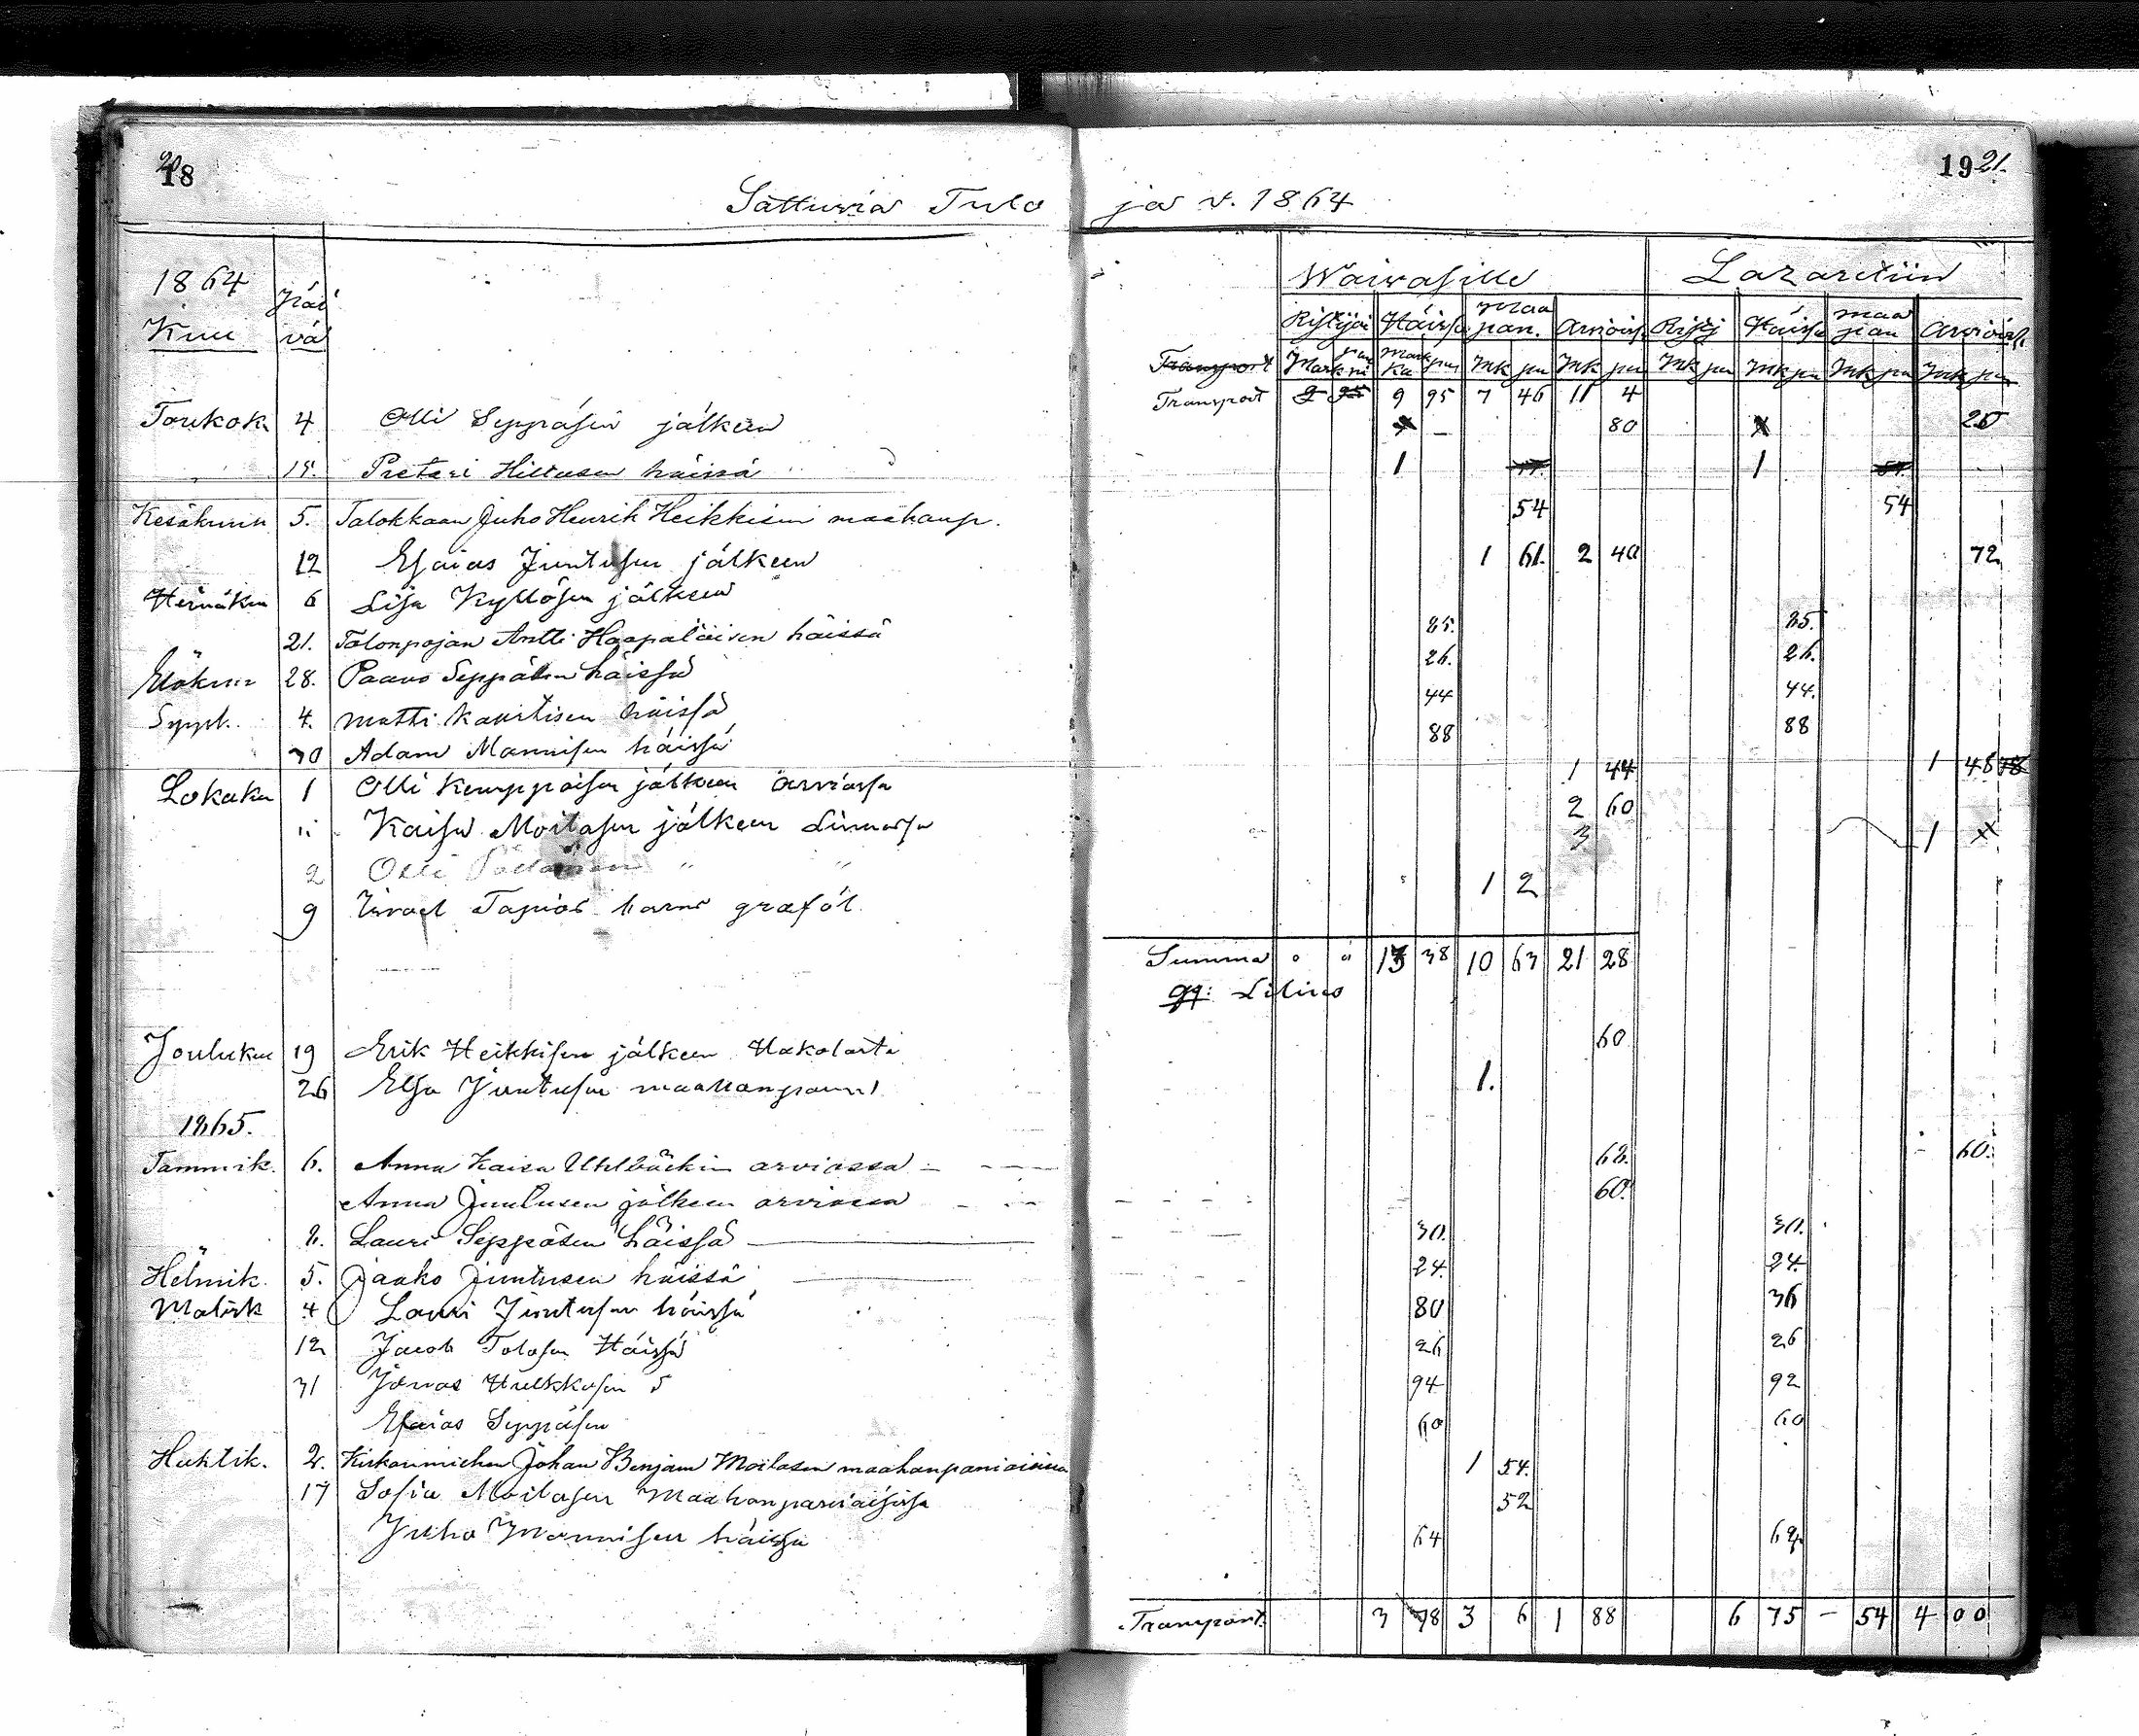 20 18
19 21.
Sattuvia Tulo ja v. 1864
1864 Päi
Kuu vä
Waivasille Lazarettiin
Ristijäi Häissä Maa pan. Arviois. Ristij Häissä maa pan Arviois.
Transport Mark pen ni Mark ka pen Mk pen Mk pen Mk pen Mk pen Mk pen Mk pen
Transport 2 25 9 95 7 46 11 4
Toukok. 4 Olli Seppäsen jälkeen 80 20
15. Pretari Hiltusen häissä 1 1
Kesäkuun 5. Talokkaan Juho Henrik Heikkisen maahanp. 54 54
12 Esaias Juntusen jälkeen 1 61. 2 40 72
Heinäku 6 Lisa Kyllösen jälkeen
21. Talonpojan Antti Haapalaisen häissä 85. 85.
Elökuu 28. Paavo Seppäsen häissä 26. 26.
Syysk. 4. Matti Kauritisen häissä 44 44.
30 Adam Mannisen häissä 88 88
Lokaku 1 Olli Kemppaisen jälkeen arviossa 1 44 1 48
" Kaisa Moilasen jälkeen Linnassa 2 60
2 Olli " " 3 1
9 Israel Tapios barns graföl 1 2
Summa 0 0 13 38 10 63 21 28
Jouluku 19 Erik Heikkisen jälkeen 60
26 Elsa Juntusen maahanpan 1.
1865.
Tammik. 6. Anna Kaisa arviossa 68. 60.
Anna Juntusen jälkeen arviossa 60.
8. Lauri Seppäsen häissä 30. 30.
Helmik. 5. Jaako Juntusen häissä 24. 24.
Malisk 4 Lauri Juntusen häissä 80 36
12 Jacob Tolosen Häissä 26 26
31 Jonas Hulkkosen 94 92
Esaias Seppäsen 60 60
Huhtik. 2. Kirkonmiehen Johan Benjam Moilasen maahanpaniaisissa 1 54.
17 Sofia Moilasen Maahanpaniaisissa 52
Juho Mannisen häissä 64 64
Transport. 3 78 3 6 1 88 6 75 – 54 4 00